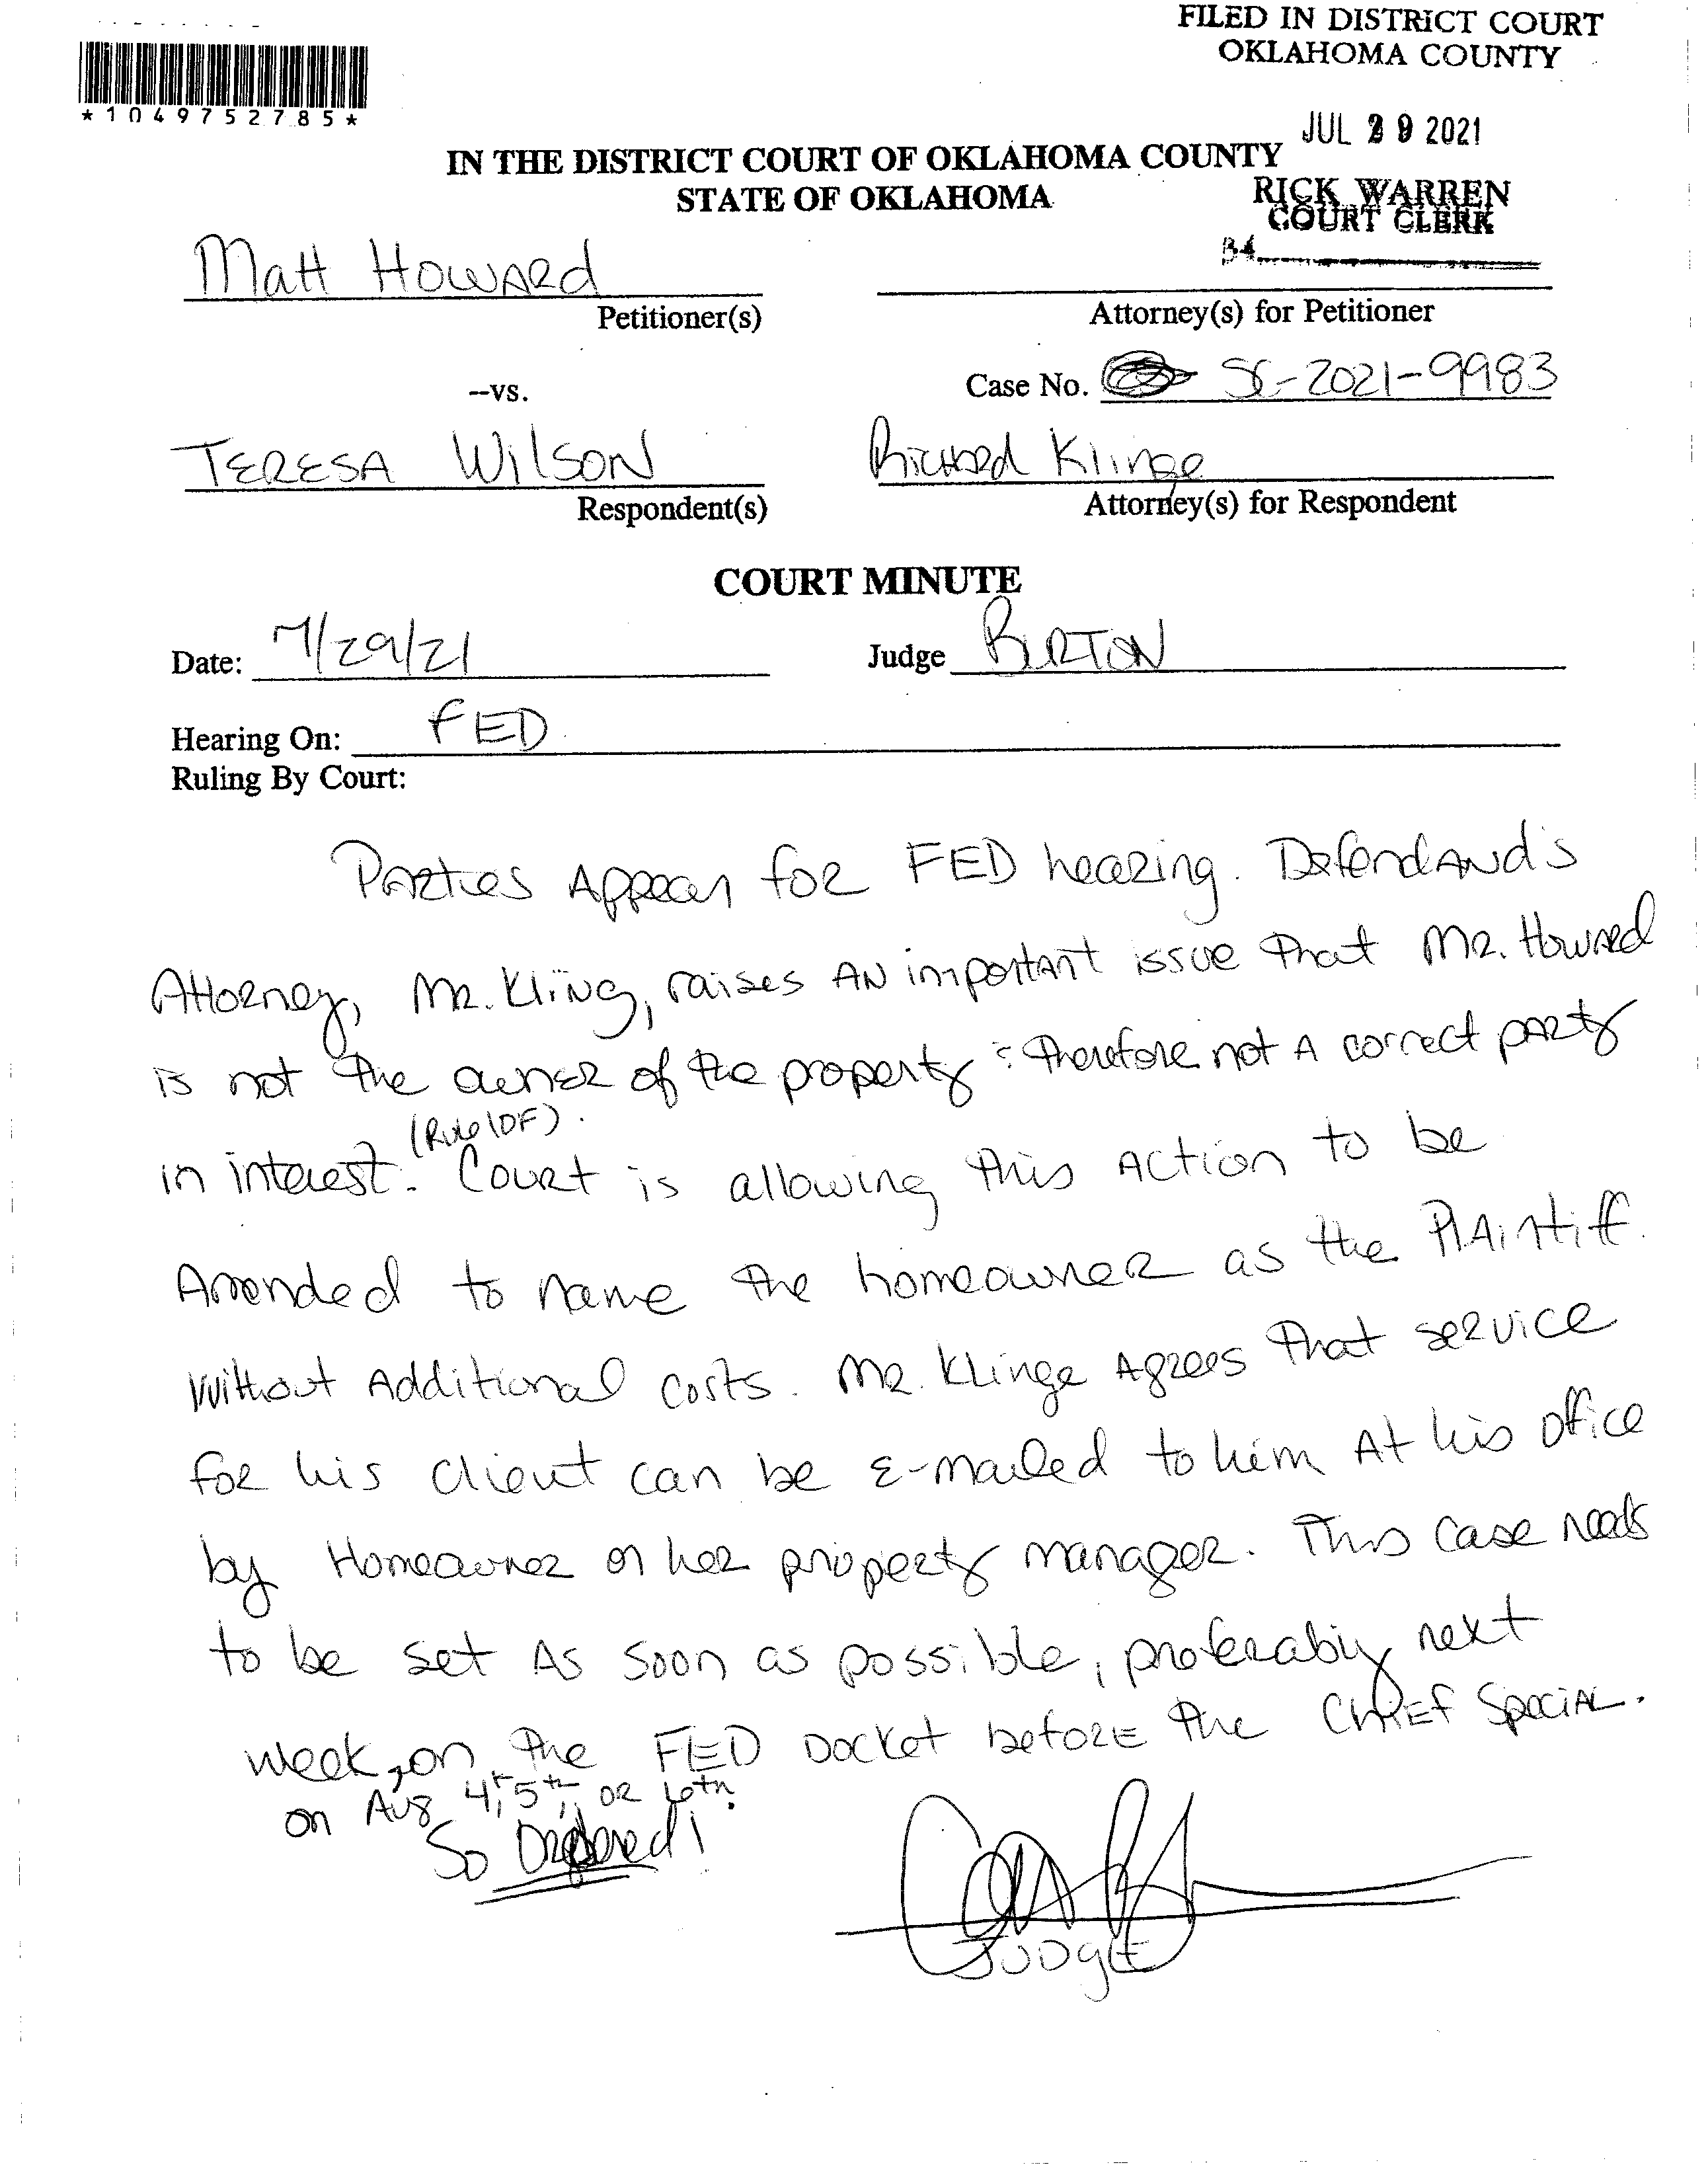 FILED IN DISTRICT COURT
OKLAHOMA COUNTY
*1049752785*
JUL 29 2021
IN THE DISTRICT COURT OF OKLAHOMA COUNTY
STATE OF OKLAHOMA
RICK WARREN
COURT CLERK
34
Matt Howard
Petitioner(s)
Attorney(s) for Petitioner
--vs.
Case No. SC-2021-9983
Teresa Wilson
Respondent(s)
Richard Klinge
Attorney(s) for Respondent
COURT MINUTE
Date: 7/29/21
Judge Burton
Hearing On: FED
Ruling By Court:
Parties Appear for FED hearing. Defendand's
Attorney, Mr. Kling, raises an important issue that Mr. Howard
is not the owner of the property therefore not a correct party
(Rule 10F).
in interest. Court is allowing this action to be
Amended to name the homeowner as the Plaintiff.
Without Additional costs. Mr. Klinge Agrees that service
for his client can be E-mailed to him at his office
by Homeowner or her property manager. This case needs
to be set As soon as possible, preferably next
week, on the FED Docket before the Chief Special.
on Aug 4th, 5th, or 6th.
So Ordered!
Judge